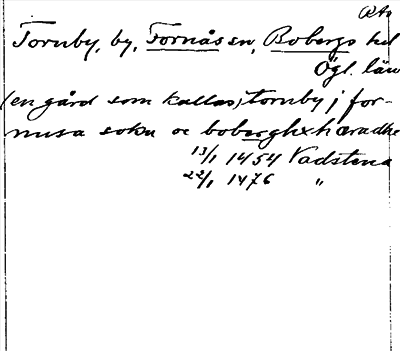 Ato
Tornby, by, Fornåsa sn, Bobergs hd
Ögl. län
(en gård som kallas) tornby j for-
nusa sokn oc boberghx hæradhe
13/1 1454 Vadstena
22/1 1476 "